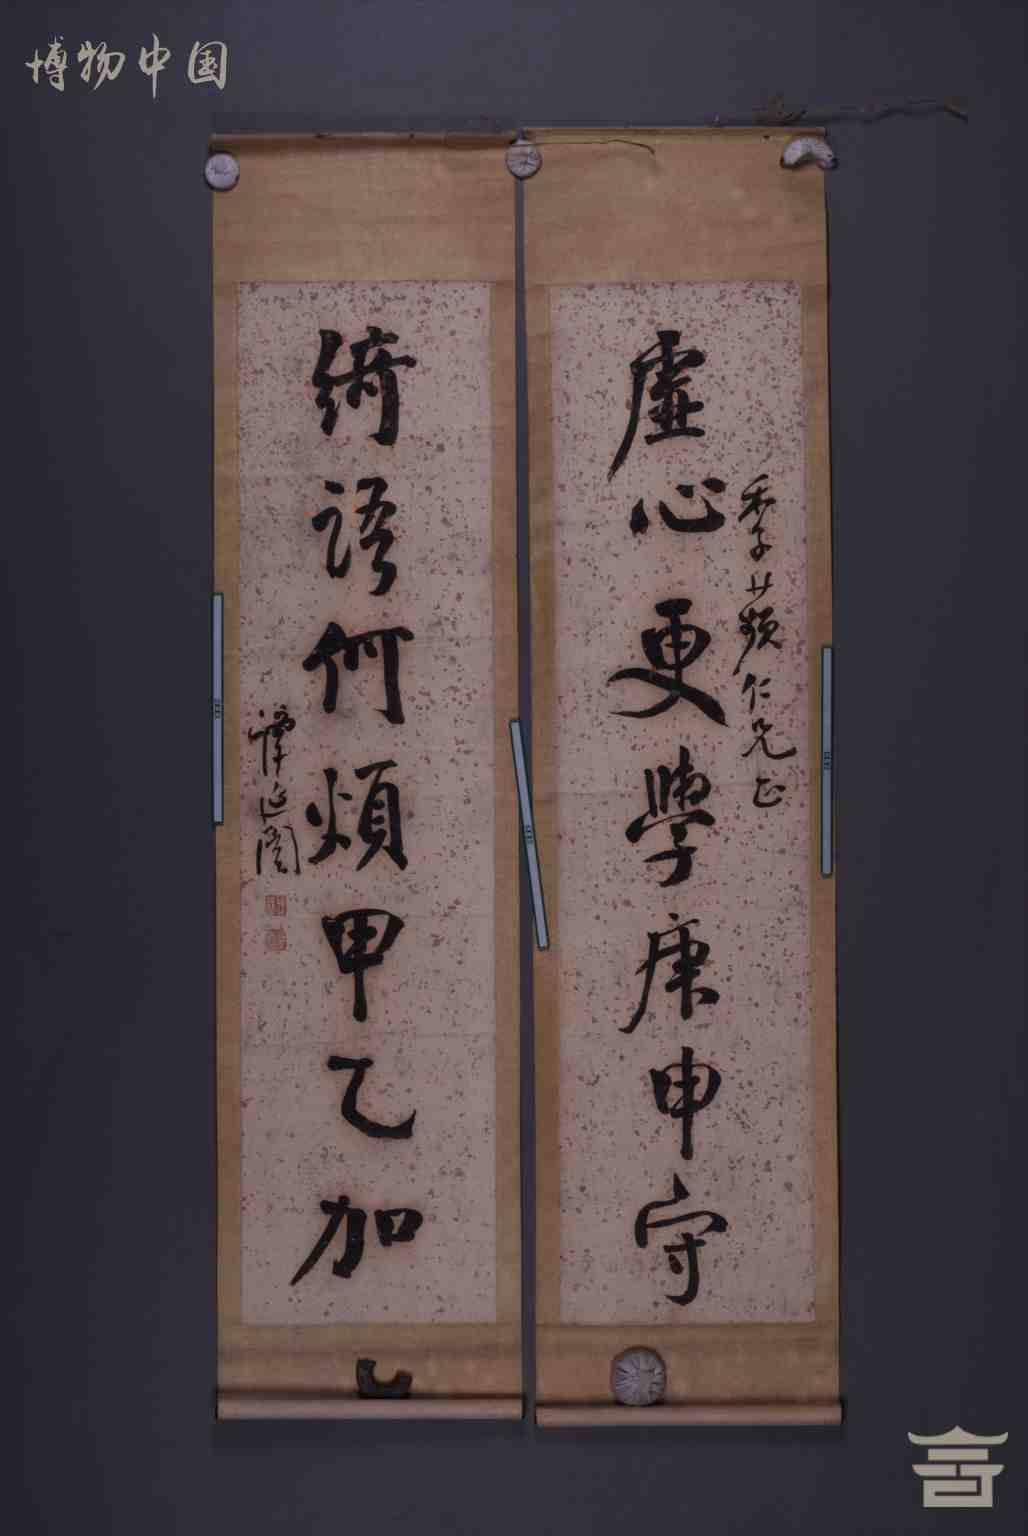 博物中国
季蘋仁兄正
虛心更學庚申守
綺語何煩甲乙加
譚延闓